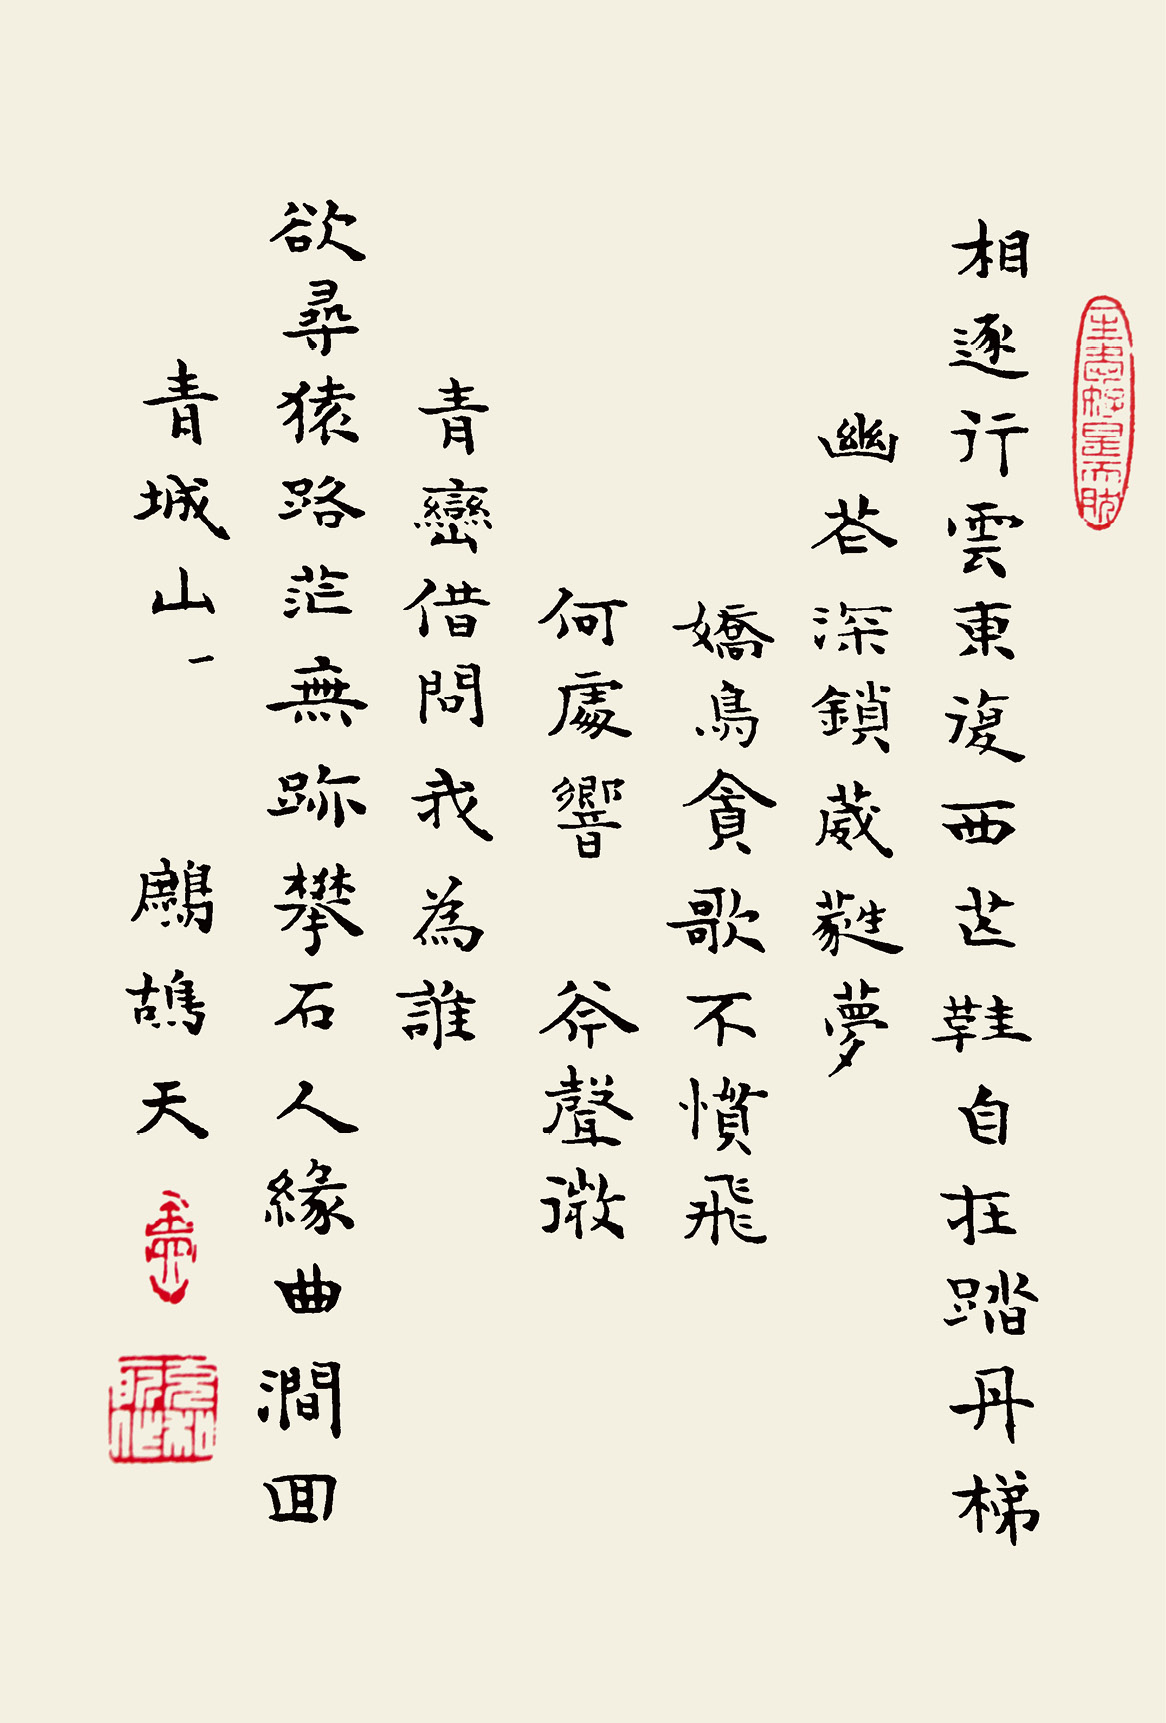 相逐行雲東復西芒鞋自在踏丹梯
幽花深鎖葳蕤夢
嬌鳥貪歌不慣飛
何處響　斧聲微
青巒借問我為誰
欲尋猿路茫無跡攀石人緣曲澗回
青城山一　鷓鴣天